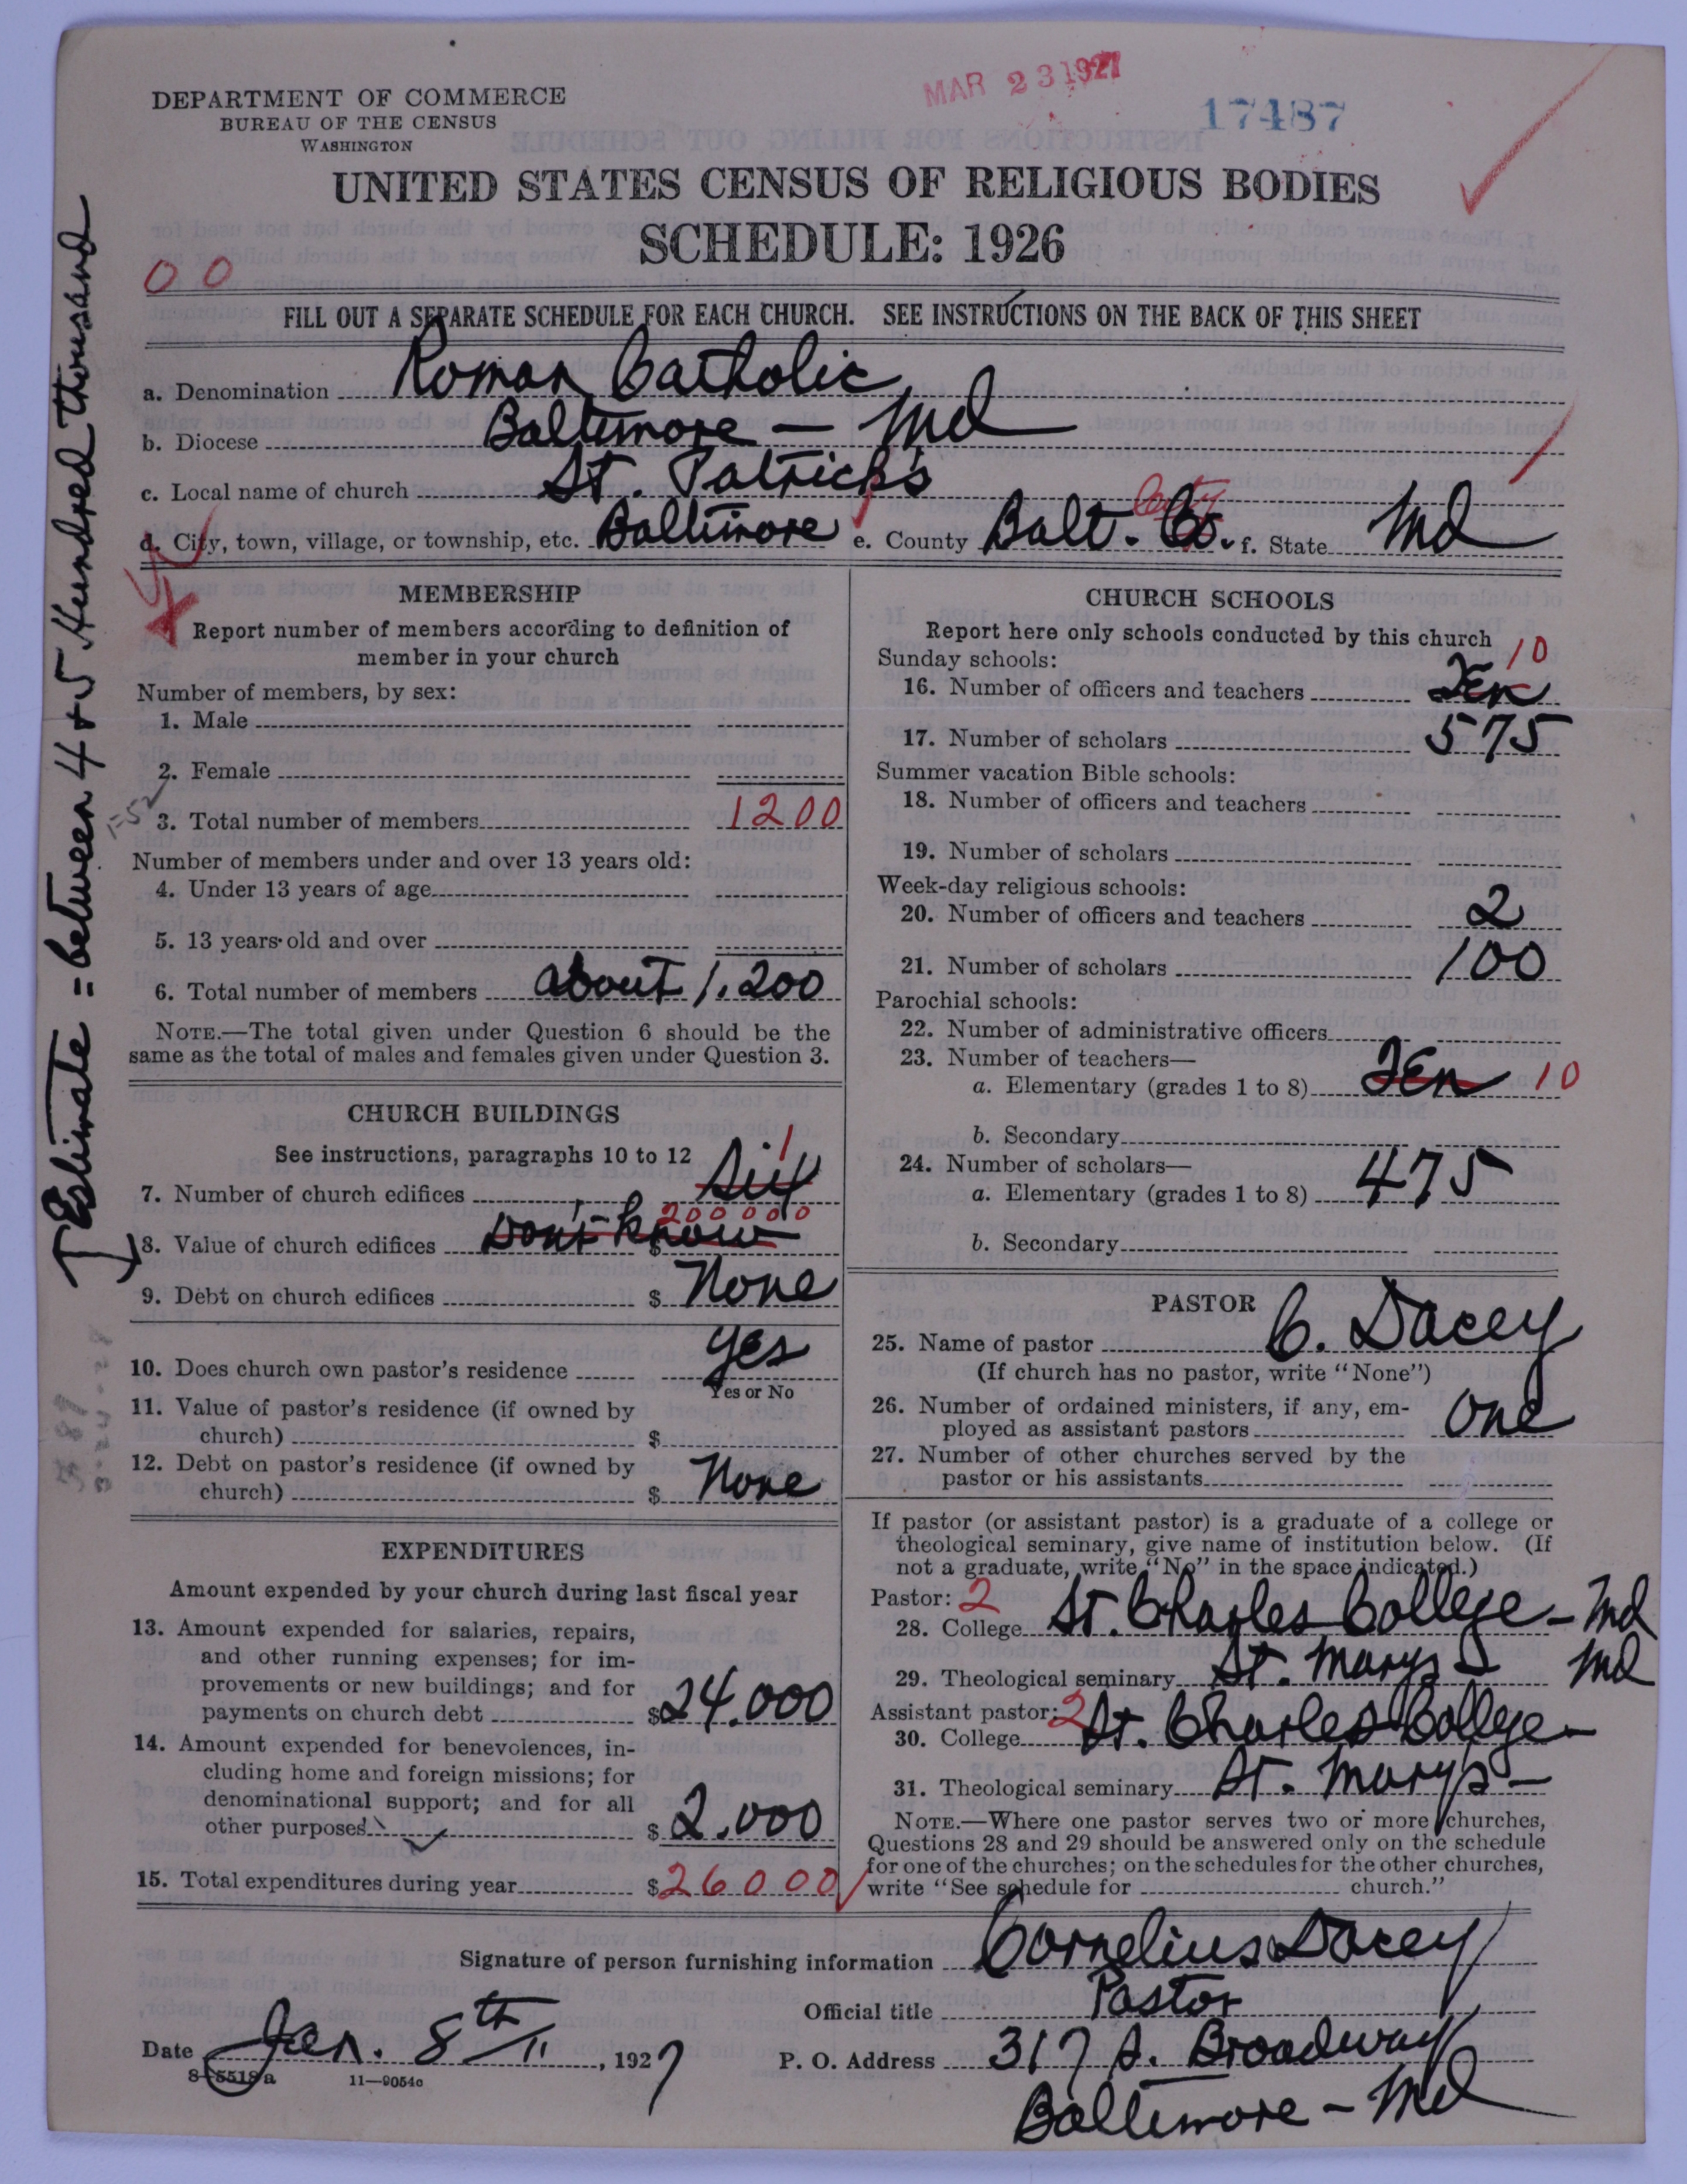 DEPARTMENT OF COMMERCE
BUREAU OF THE CENSUS
WASHINGTON
MAR 23 1927
17487
UNITED STATES CENSUS OF RELIGIOUS BODIES
SCHEDULE: 1926
00
FILL OUT A SEPARATE SCHEDULE FOR EACH CHURCH. SEE INSTRUCTIONS ON THE BACK OF THIS SHEET
a. Denomination Roman Catholic
b. Diocese Baltimore — Md
c. Local name of church St. Patrick's
d. City, town, village, or township, etc. Baltimore e. County Balt. Co. City f. State Md
Estimate = between 4 + 5 Hundred thousand
MEMBERSHIP
Report number of members according to definition of
member in your church
Number of members, by sex:
1. Male
2. Female
3. Total number of members 1200
Number of members under and over 13 years old:
4. Under 13 years of age
5. 13 years old and over
6. Total number of members about 1,200
NOTE.—The total given under Question 6 should be the
same as the total of males and females given under Question 3.
CHURCH BUILDINGS
See instructions, paragraphs 10 to 12
7. Number of church edifices Six 1
8. Value of church edifices $ Don't know 200000
9. Debt on church edifices $ None
10. Does church own pastor's residence yes
Yes or No
11. Value of pastor's residence (if owned by
church) $
12. Debt on pastor's residence (if owned by
church) $ None
EXPENDITURES
Amount expended by your church during last fiscal year
13. Amount expended for salaries, repairs,
and other running expenses; for im-
provements or new buildings; and for
payments on church debt $24.000
14. Amount expended for benevolences, in-
cluding home and foreign missions; for
denominational support; and for all
other purposes $2.000
15. Total expenditures during year $26000
CHURCH SCHOOLS
Report here only schools conducted by this church
Sunday schools:
16. Number of officers and teachers Ten 10
17. Number of scholars 575
Summer vacation Bible schools:
18. Number of officers and teachers
19. Number of scholars
Week-day religious schools:
20. Number of officers and teachers 2
21. Number of scholars 100
Parochial schools:
22. Number of administrative officers
23. Number of teachers—
a. Elementary (grades 1 to 8) Ten 10
b. Secondary
24. Number of scholars—
a. Elementary (grades 1 to 8) 475
b. Secondary
PASTOR
25. Name of pastor C. Dacey
(If church has no pastor, write "None")
26. Number of ordained ministers, if any, em-
ployed as assistant pastors One
27. Number of other churches served by the
pastor or his assistants
If pastor (or assistant pastor) is a graduate of a college or
theological seminary, give name of institution below. (If
not a graduate, write "No" in the space indicated.)
Pastor: 2
28. College St. Charles College — Md
29. Theological seminary St. Mary's Md
Assistant pastor: 2
30. College St. Charles College —
31. Theological seminary St. Mary's —
NOTE.—Where one pastor serves two or more churches,
Questions 28 and 29 should be answered only on the schedule
for one of the churches; on the schedules for the other churches,
write "See schedule for church."
Signature of person furnishing information Cornelius Dacey
Official title Pastor
Date Jan. 8th, 1927 P. O. Address 317 S. Broadway
8—5518a 11—9054c
Baltimore — Md